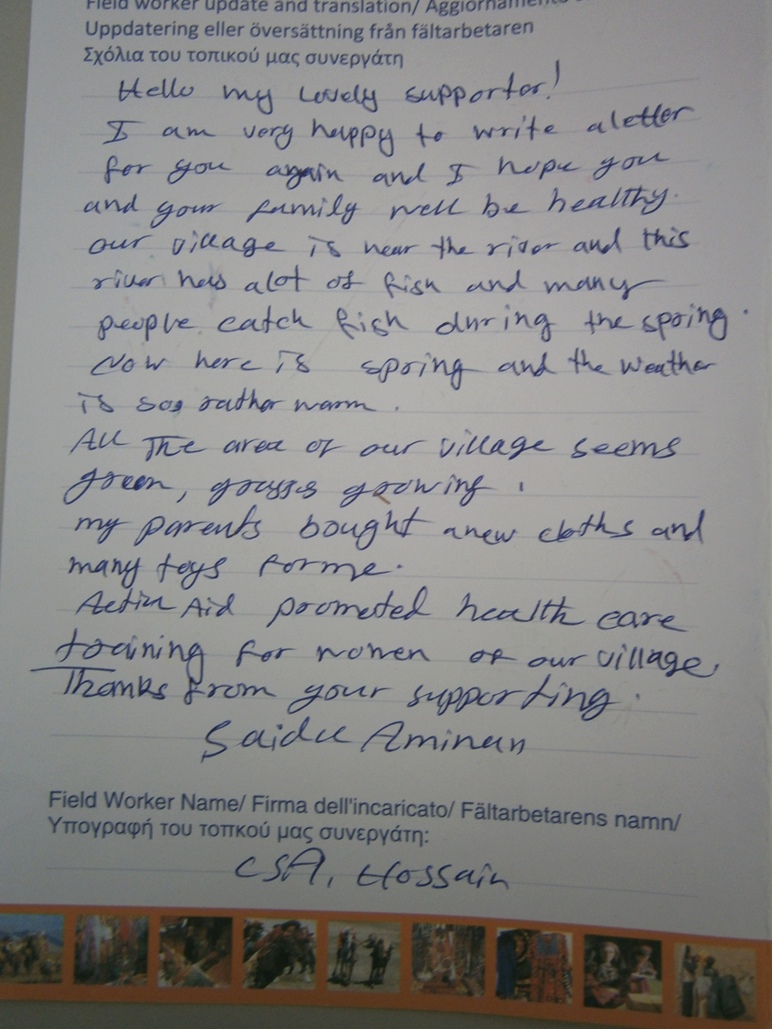 Field worker update and translation/ Aggiornamento
Uppdatering eller översättning från fältarbetaren
Σχόλια του τοπικού μας συνεργάτη
Hello my lovely supporter!
I am very happy to write aletter
for you again and I hope you
and your family well be healthy.
our village is near the river and this
river has alot of fish and many
people catch fish during the spring.
Now here is spring and the weather
is rather warm.
All The area of our village seems
green, growing.
my parents bought anew cloths and
many toys forme.
Action Aid promoted health care
training for women of our village,
Thanks from your supporting.
Aminan
Field Worker Name/ Firma dell'incaricato/ Fältarbetarens namn/
Υπογραφή του τοπκού μας συνεργάτη:
CSA, Hossain